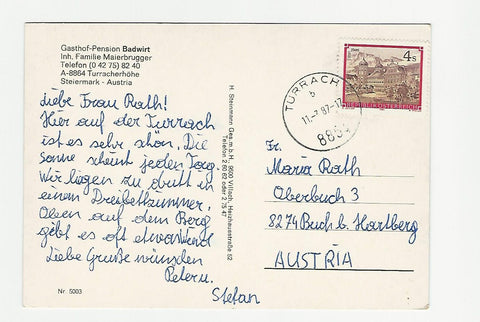 Gasthof-Pension Badwirt
Inh. Familie Maierbrugger
Telefon (0 42 75) 82 40
A-8864 Turracherhöhe
Steiermark - Austria
Liebe Frau Rath!
Hier auf der Turrach
ist es sehr schön. Die
Sonne scheint jeden Tag.
Wir liegen zu dritt in
einem Dreibettzimmer.
Oben auf dem Berg
geht es oft etwas Wind
Liebe Grüße wünschen
Peter u.
Stefan
Nr. 5003
H. Steinmann Ges.m.b.H. 9500 Villach, Heizhausstraße 52
Telefon 2 60 82 oder 2 75 47
TURRACH
b
11.-7.87-17
886
4 S
REPUBLIK ÖSTERREICH
Fr.
Maria Rath
Oberbuch 3
8274 Buch b. Hartberg
AUSTRIA